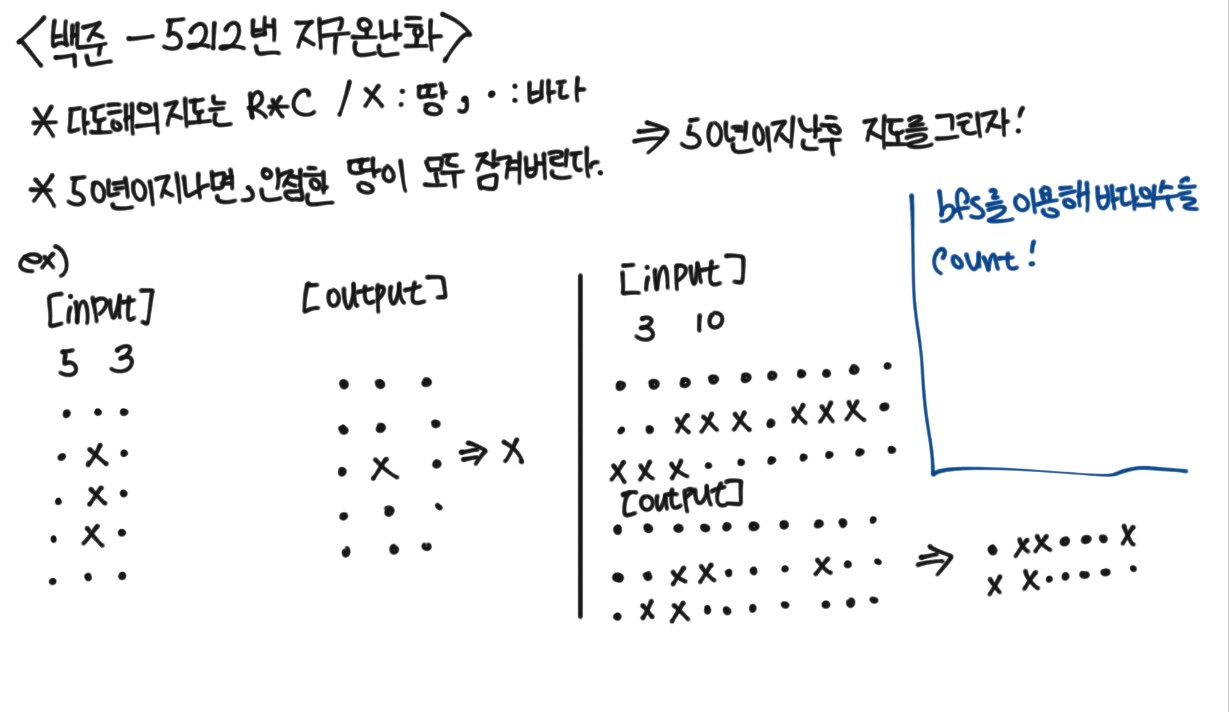 <백준 - 5212번 지구온난화>
* 다도해의지도는 R*C / X : 땅, · : 바다
* 50년이지나면, 인접한 땅이 모두 잠겨버린다.
⇒ 50년이지난후 지도를그리자!
bfs를 이용해 바다의수를
count!
ex)
[input]
5 3
. . .
. X .
. X .
. X .
. . .
[output]
. . .
. . .
. X . ⇒ X
. . .
. . .
[input]
3 10
. . . . . . . . . .
. . X X X . X X X .
X X X . . . . . . .
[output]
. . . . . . . . . .
. . X X . . . X . .
. X X . . . . . . .
⇒ . X X . . . X
X X . . . . .